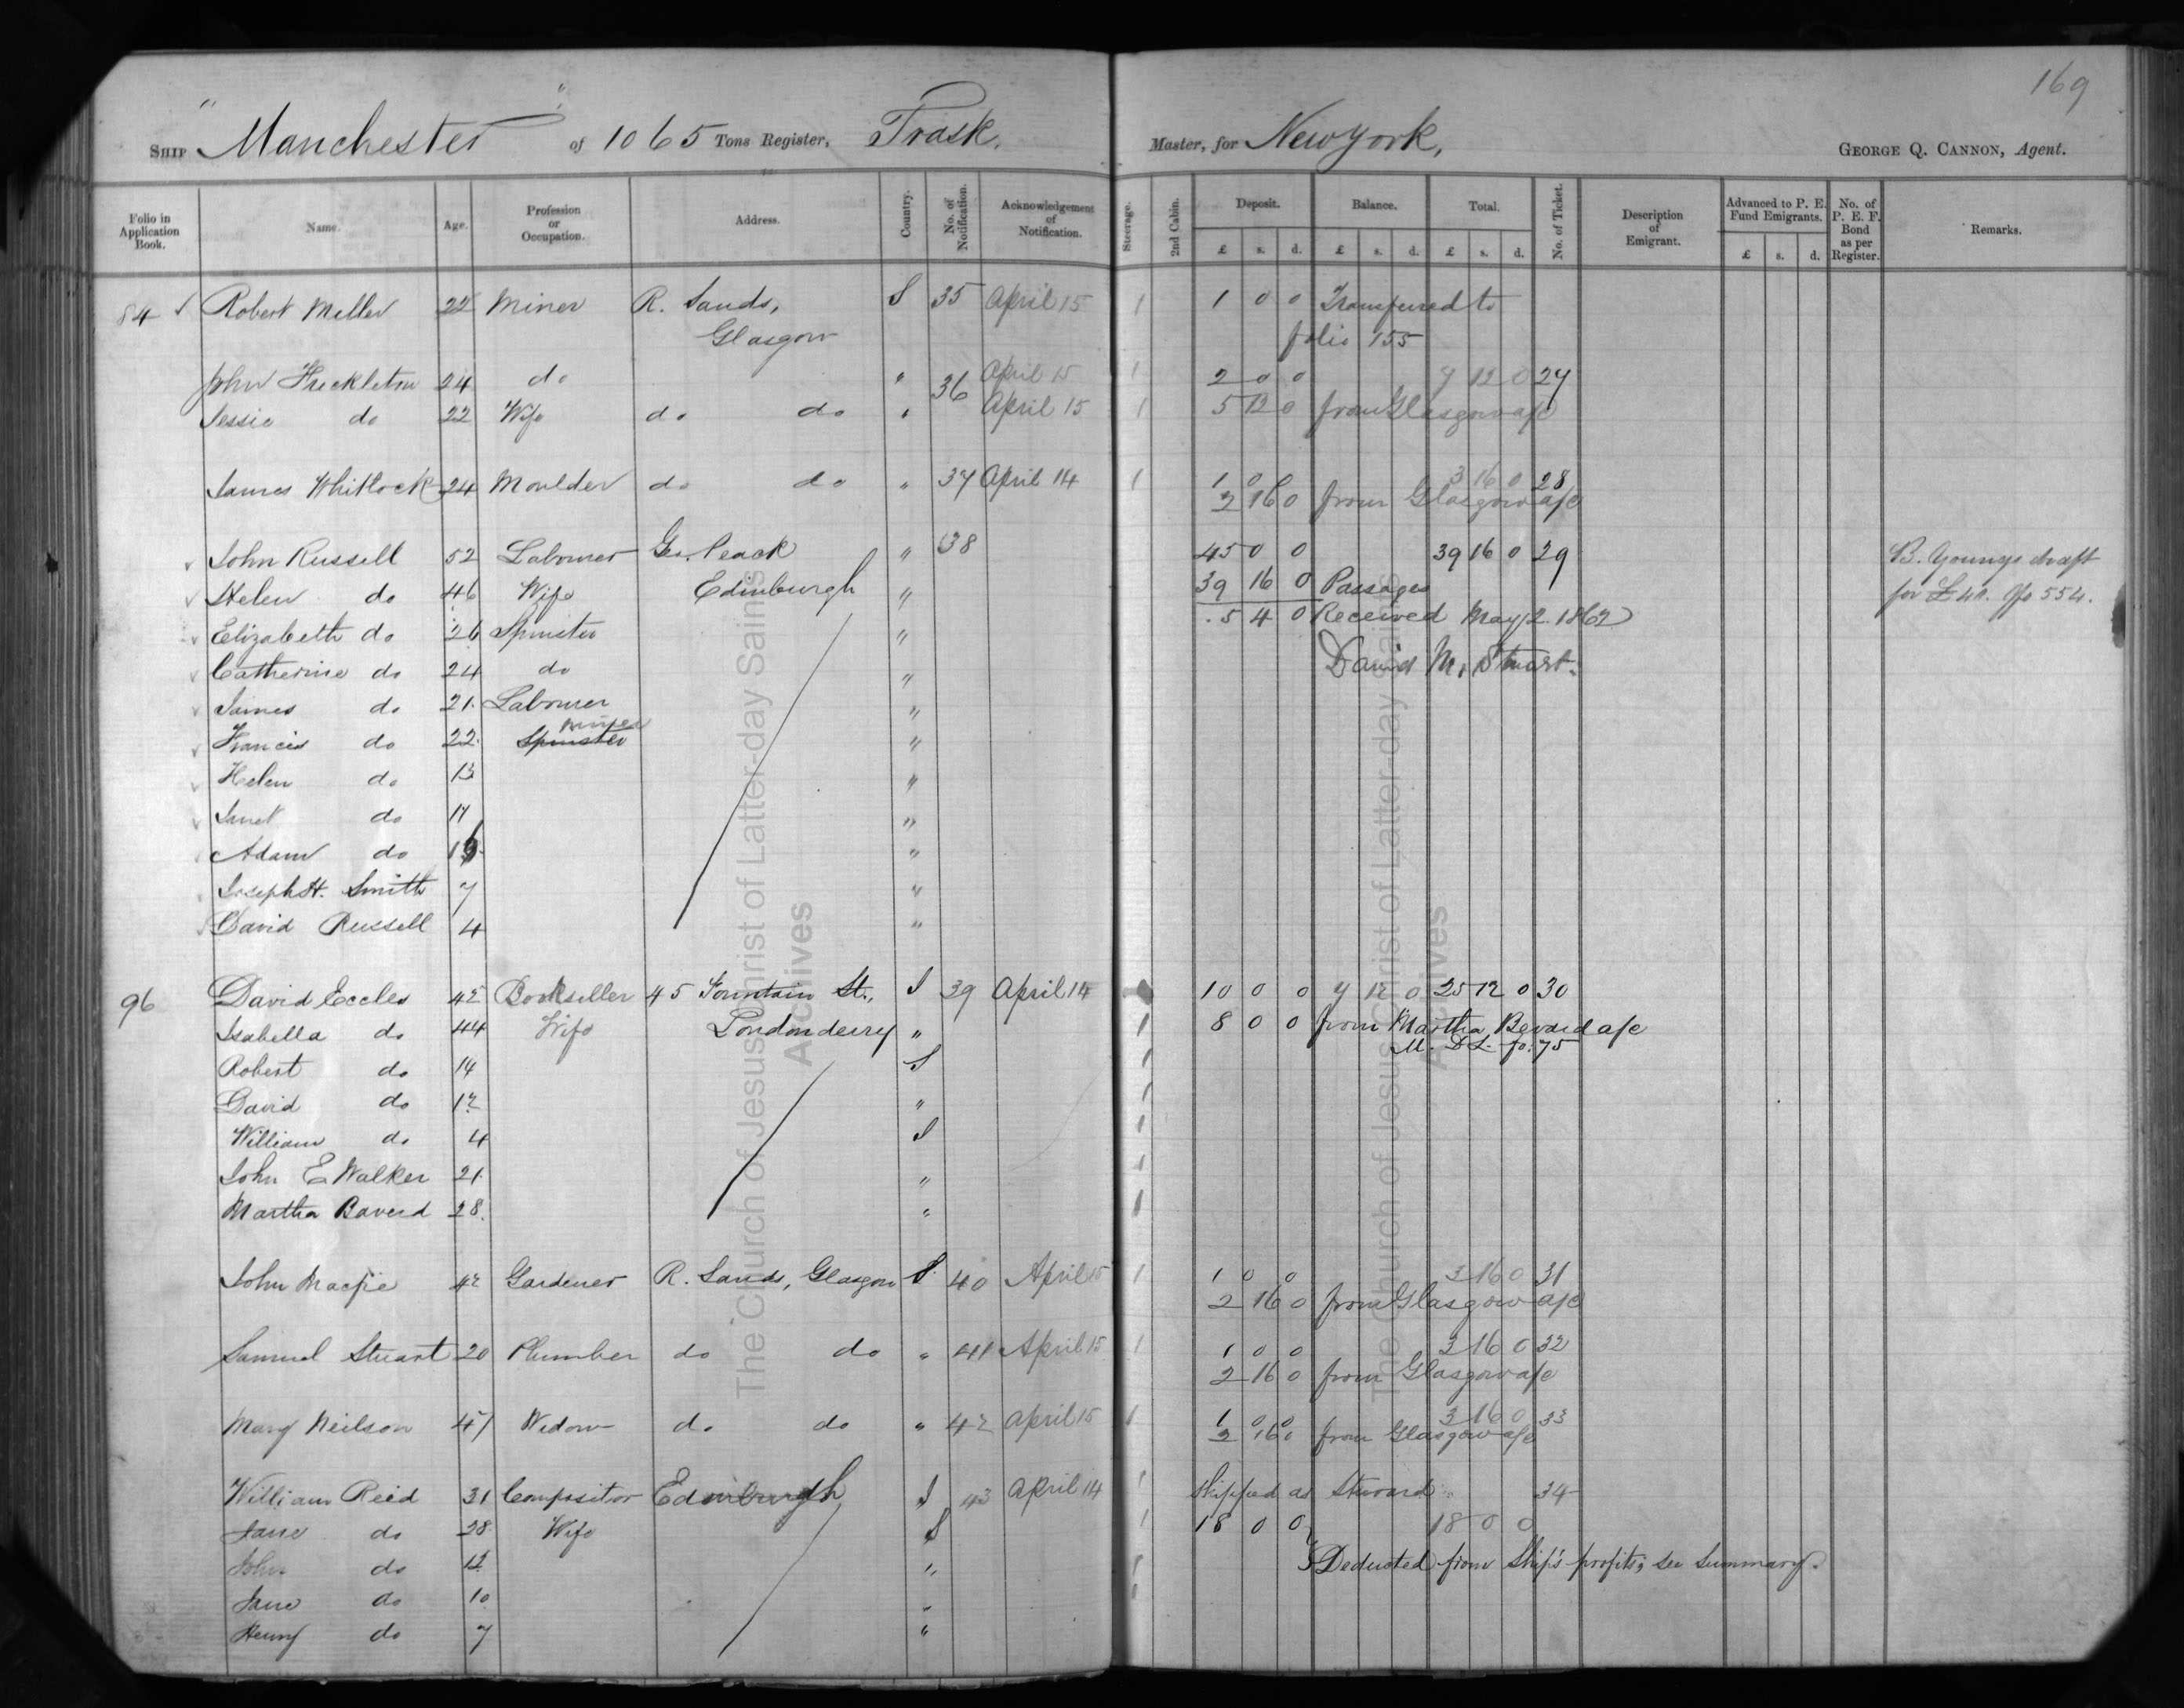 169
Ship "Manchester" of 1065 Tons Register, Trask, Master, for New York,
George Q. Cannon, Agent.
Folio in Application Book. Name. Age. Profession or Occupation. Address. Country. No. of Notification. Acknowledgement of Notification. Steerage. 2nd Cabin. Deposit. Balance. Total. No. of Ticket. Description of Emigrant. Advanced to P. E. Fund Emigrants. No. of P. E. F. Bond as per Register. Remarks.
£ s. d. £ s. d. £ s. d. £ s. d.
84 Robert Miller 22 Miner R. Sands, S 35 April 15 1 1 0 0 Transferred to
Glasgow folio 155
John Freckleton 24 do " 36 April 15 1 2 0 0 7 12 0 27
Jessie do 22 Wife do do " April 15 1 5 12 0 from Glasgow a/c
James Whitlock 24 Moulder do do " 37 April 14 1 1 0 0 3 16 0 28
2 16 0 from Glasgow a/c
John Russell 52 Labourer Geo. Peack " 38 45 0 0 39 16 0 29 B. Youngs draft
Helen do 46 Wife Edinburgh " 39 16 0 Passages for £40. fo 554.
Elizabeth do 26 Spinster " 5 4 0 Received May 2. 1862
Catherine do 24 do " David M. Stuart.
James do 21 Labourer "
Francis do 22 Spinster miner "
Helen do 13 "
Janet do 17 "
Adam do "
Joseph H. Smith 7 "
David Russell 4 "
96 David Eccles 42 Bookseller 45 Fountain St., S 39 April 14 10 0 0 7 12 0 25 12 0 30
Isabella do 44 Wife Londonderry " 1 8 0 0 from Martha Bevard a/c
M. D L fo. 75
Robert do 14 S 1
David do 12 " 1
William do 4 S 1
John E Walker 21 " 1
Martha Baverd 28 " 1
John Macfie 42 Gardener R. Sands, Glasgow S 40 April 15 1 1 0 0 3 16 0 31
2 16 0 from Glasgow a/c
Samuel Stuart 20 Plumber do do " 41 April 15 1 1 0 0 3 16 0 32
2 16 0 from Glasgow a/c
Mary Neilson 47 Widow do do " 42 April 15 1 1 0 0 3 16 0 33
2 16 0 from Glasgow a/c
William Reid 31 Compositor Edinburgh S 43 April 14 1 Shipped as Steward 34
Jane do 28 Wife S 1 18 0 0 18 0 0
John do 12 " 1 Deducted from Ship's profits; see summary.
Jane do 10 " 1
Henry do 7 "
The Church of Jesus Christ of Latter-day Saints
Archives
The Church of Jesus Christ of Latter-day Saints
Archives